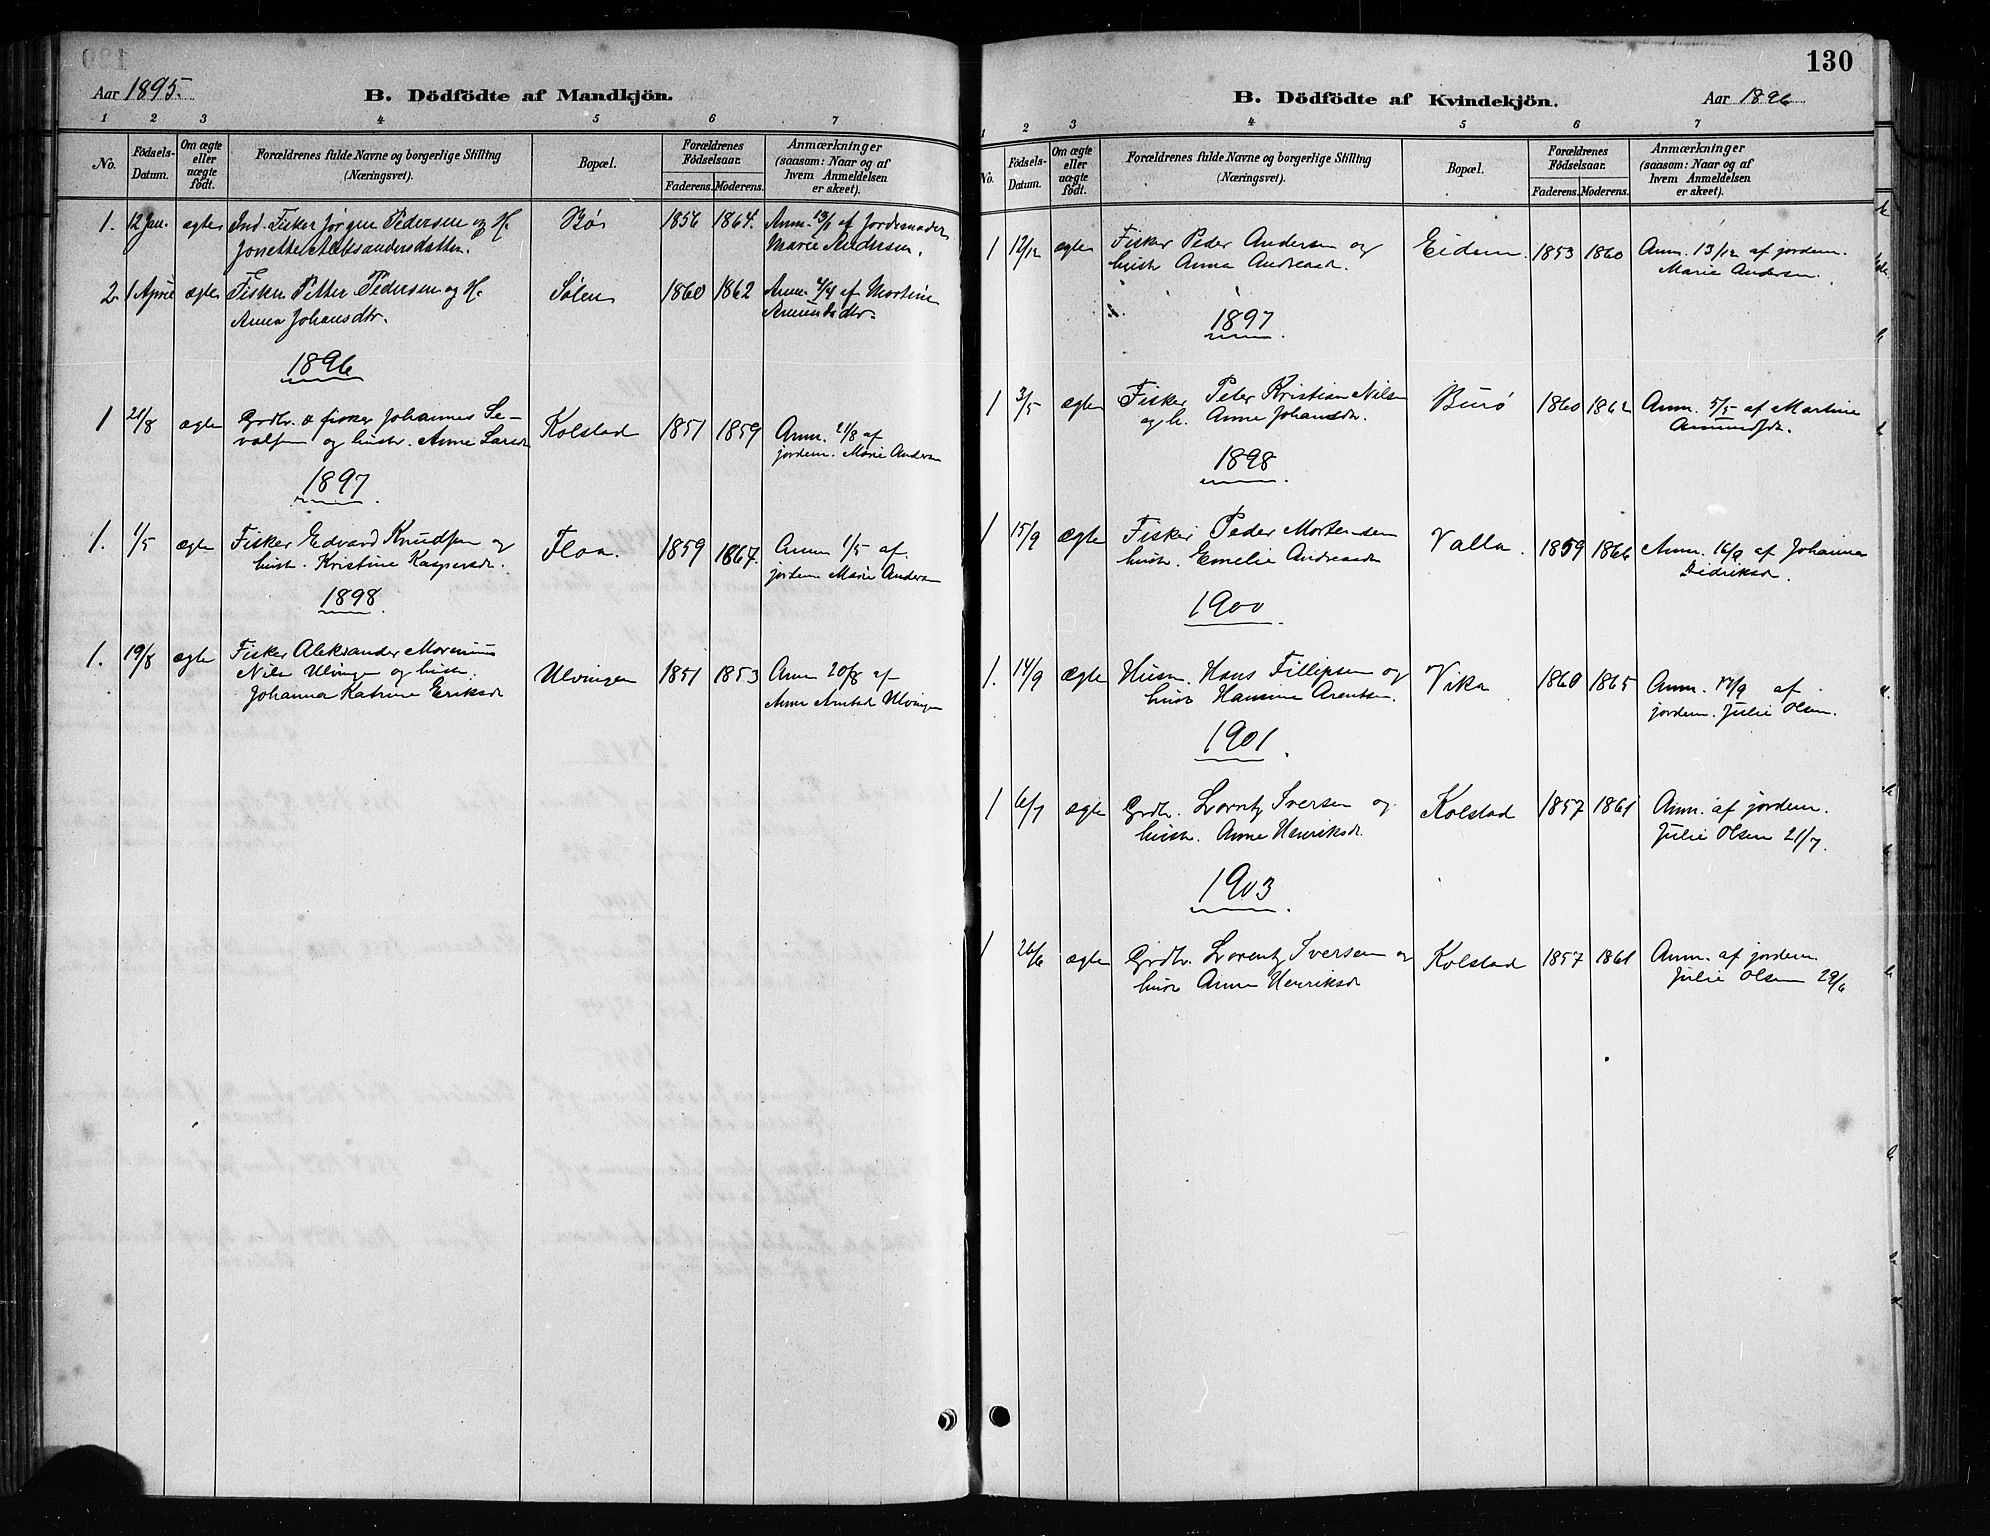 Aar 1895.
B. Dödfödte af Mandkjön.
1 2 3 4 5 6 7
No. Födsels-Datum. Om ægte eller uægte födt. Forældrenes fulde Navne og borgerlige Stilling (Næringsvei). Bopæl. Forældrenes Födselsaar. Faderens. Moderens. Anmærkninger (saasom: Naar og af hvem Anmeldelsen er skeet).
1. 12 Jan. ægte Ind. Fisker Jørgen Pedersen og H. Bøs 1856 1864. Anm. 13/1 af Jordemoder
Jonette Aleksandersdatter. Marie Andersen.
2. 1 April ægte Fisker Petter Pedersen og H. Sølen 1860 1862 Anm. 4/4 af Martine
Anna Johansdtr. Amundsdtr.
1896
1 21/8 ægte Grdbr. o fisker Johannes Se- Kolstad 1851 1859 Anm. 21/8 af
valsen og hustr. Anne Larsdr jordem. Marie Anders
1897
1. 1/5 ægte Fisker Edvard Knudsen og Floa. 1859 1867. Anm 1/5 af
hustr. Kristine Kaspersdr. jordem Marie Anders
1898
1. 19/8 ægte Fisker Aleksander Morenius Ulvingen 1851 1853 Anm 20/8 af
Nils Ulvingen og hustr. Anne Ulvingen
Johanna Katrine Eriksdr
130
B. Dödfödte af Kvindekjön.
Aar 1896
1 2 3 4 5 6 7
No. Födsels-Datum. Om ægte eller uægte födt. Forældrenes fulde Navne og borgerlige Stilling (Næringsvei). Bopæl. Forældrenes Födselsaar. Faderens. Moderens. Anmærkninger (saasom: Naar og af hvem Anmeldelsen er skeet).
1 12/12 ægte Fisker Peder Andersen og Eidem. 1853 1860 Anm. 13/12 af jordem.
hustr Anna Andreasdr. Marie Andersen.
1897
1 3/5 ægte Fisker Peter Kristian Nilsen Burø 1860 1862 Anm. 5/5 af Martine
og h. Anne Johansdr. Amundsdr.
1898
1 15/9 ægte Fisker Peder Mortensen Valla. 1859 1866 Anm. 16/9 af Johanna
hustr. Emelie Andreasdr Didriksdr.
1900
1. 14/9 ægte Husm. Hans Fillipsen og Vika 1860 1865 Anm. 17/9 af
hustr Hansine Arentsen. jordem. Julie Olsen.
1901
1 6/7 ægte Grdbr. Lorentz Iversen og Kolstad 1857 1861 Anm. af jordem.
hustr. Anne Henriksdr. Julie Olsen 21/7.
1903
1 26/6 ægte Grdbr. Lorentz Iversen og Kolstad 1857 1861 Anm. af jordem.
hustr Anne Henriksdr Julie Olsen 29/6